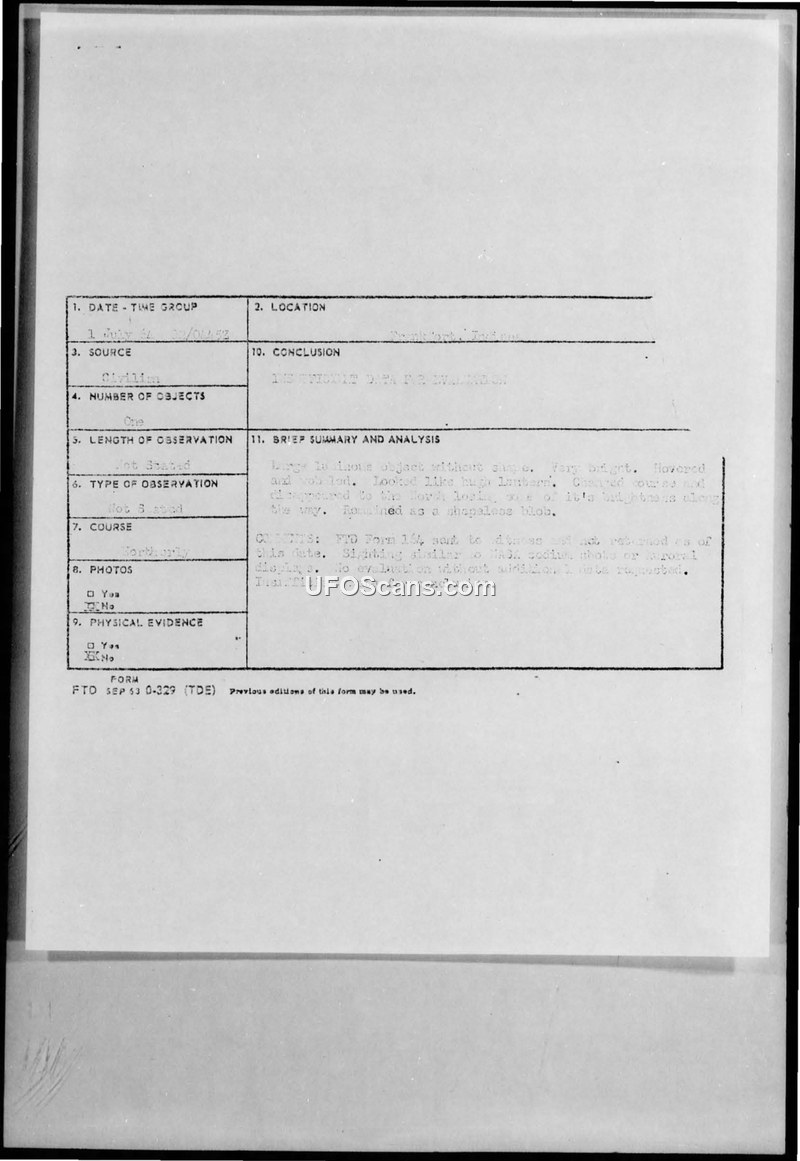 1. DATE - TIME GROUP
1 July
2. LOCATION
Frankfort, Indiana
3. SOURCE
Civilian
10. CONCLUSION
INSUFFICIENT DATA FOR EVALUATION
4. NUMBER OF OBJECTS
One
5. LENGTH OF OBSERVATION
Not Stated
11. BRIEF SUMMARY AND ANALYSIS
Large luminous object without shape. Very bright. Hovered
and wobbled. Looked like huge lantern. Changed course and
disappeared to the North losing some of it's brightness along
the way. Remained as a shapeless blob.
COMMENTS: FTD Form 164 sent to witness and not returned as of
this date. Sighting similar to NASA sodium shots or auroral
displays. No evaluation without additional data requested.
6. TYPE OF OBSERVATION
Not Stated
7. COURSE
Northerly
8. PHOTOS
□ Yes
XX No
9. PHYSICAL EVIDENCE
□ Yes
XX No
FORM
FTD SEP 63 0-329 (TDE) Previous editions of this form may be used.
UFOScans.com